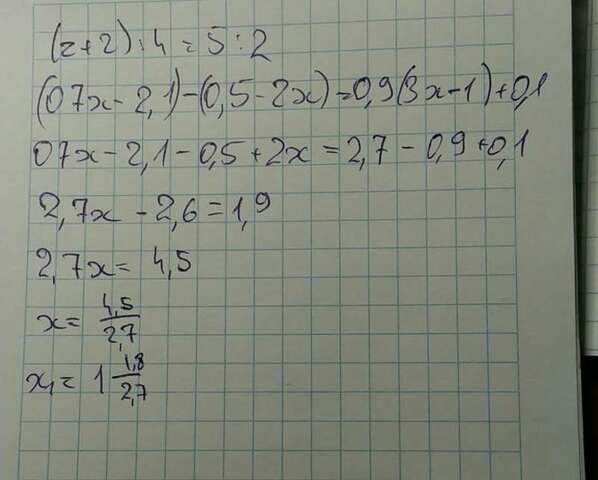 (z+2):4=5:2
(07x-2,1)-(0,5-2x)=0,9(3x-1)+0,1
07x-2,1-0,5+2x=2,7-0,9+0,1
2,7x-2,6=1,9
2,7x=4,5
x=4,5/2,7
x=1 1,8/2,7